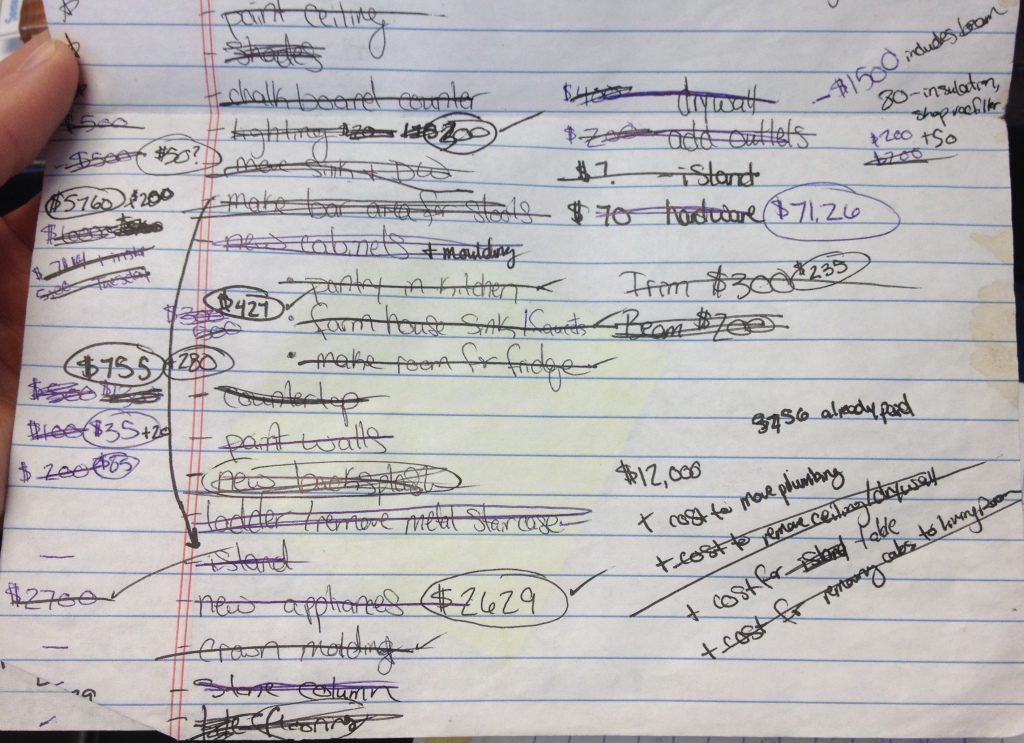 $ - paint ceiling
- shades
- chalk board counter $400 drywall - $1500 includes beam
$500 - lighting $200 $700 add outlets 80 - insulation,
shop roofiller
$200 +50
$200
$500 $50? - move sink + DW $? island
$5760 $200 - make bar area for stools $70 hardware $71.26
- new cabinets + moulding
• pantry in kitchen Trim $300 $235
$300 $427 • farm house sink, faucets Beam $200
$755 +280 • make room for fridge
$500 - countertop $756 already paid
$100 $35 +20 - paint walls
$200 $85 - new backsplash $12,000
+ cost to move plumbing
- ladder/remove metal staircase + cost to remove ceiling/drywall
- - island + cost for island table
$2700 - new appliances $2629 + cost for removing cabs to living room
- crown molding
- stone column
- flooring